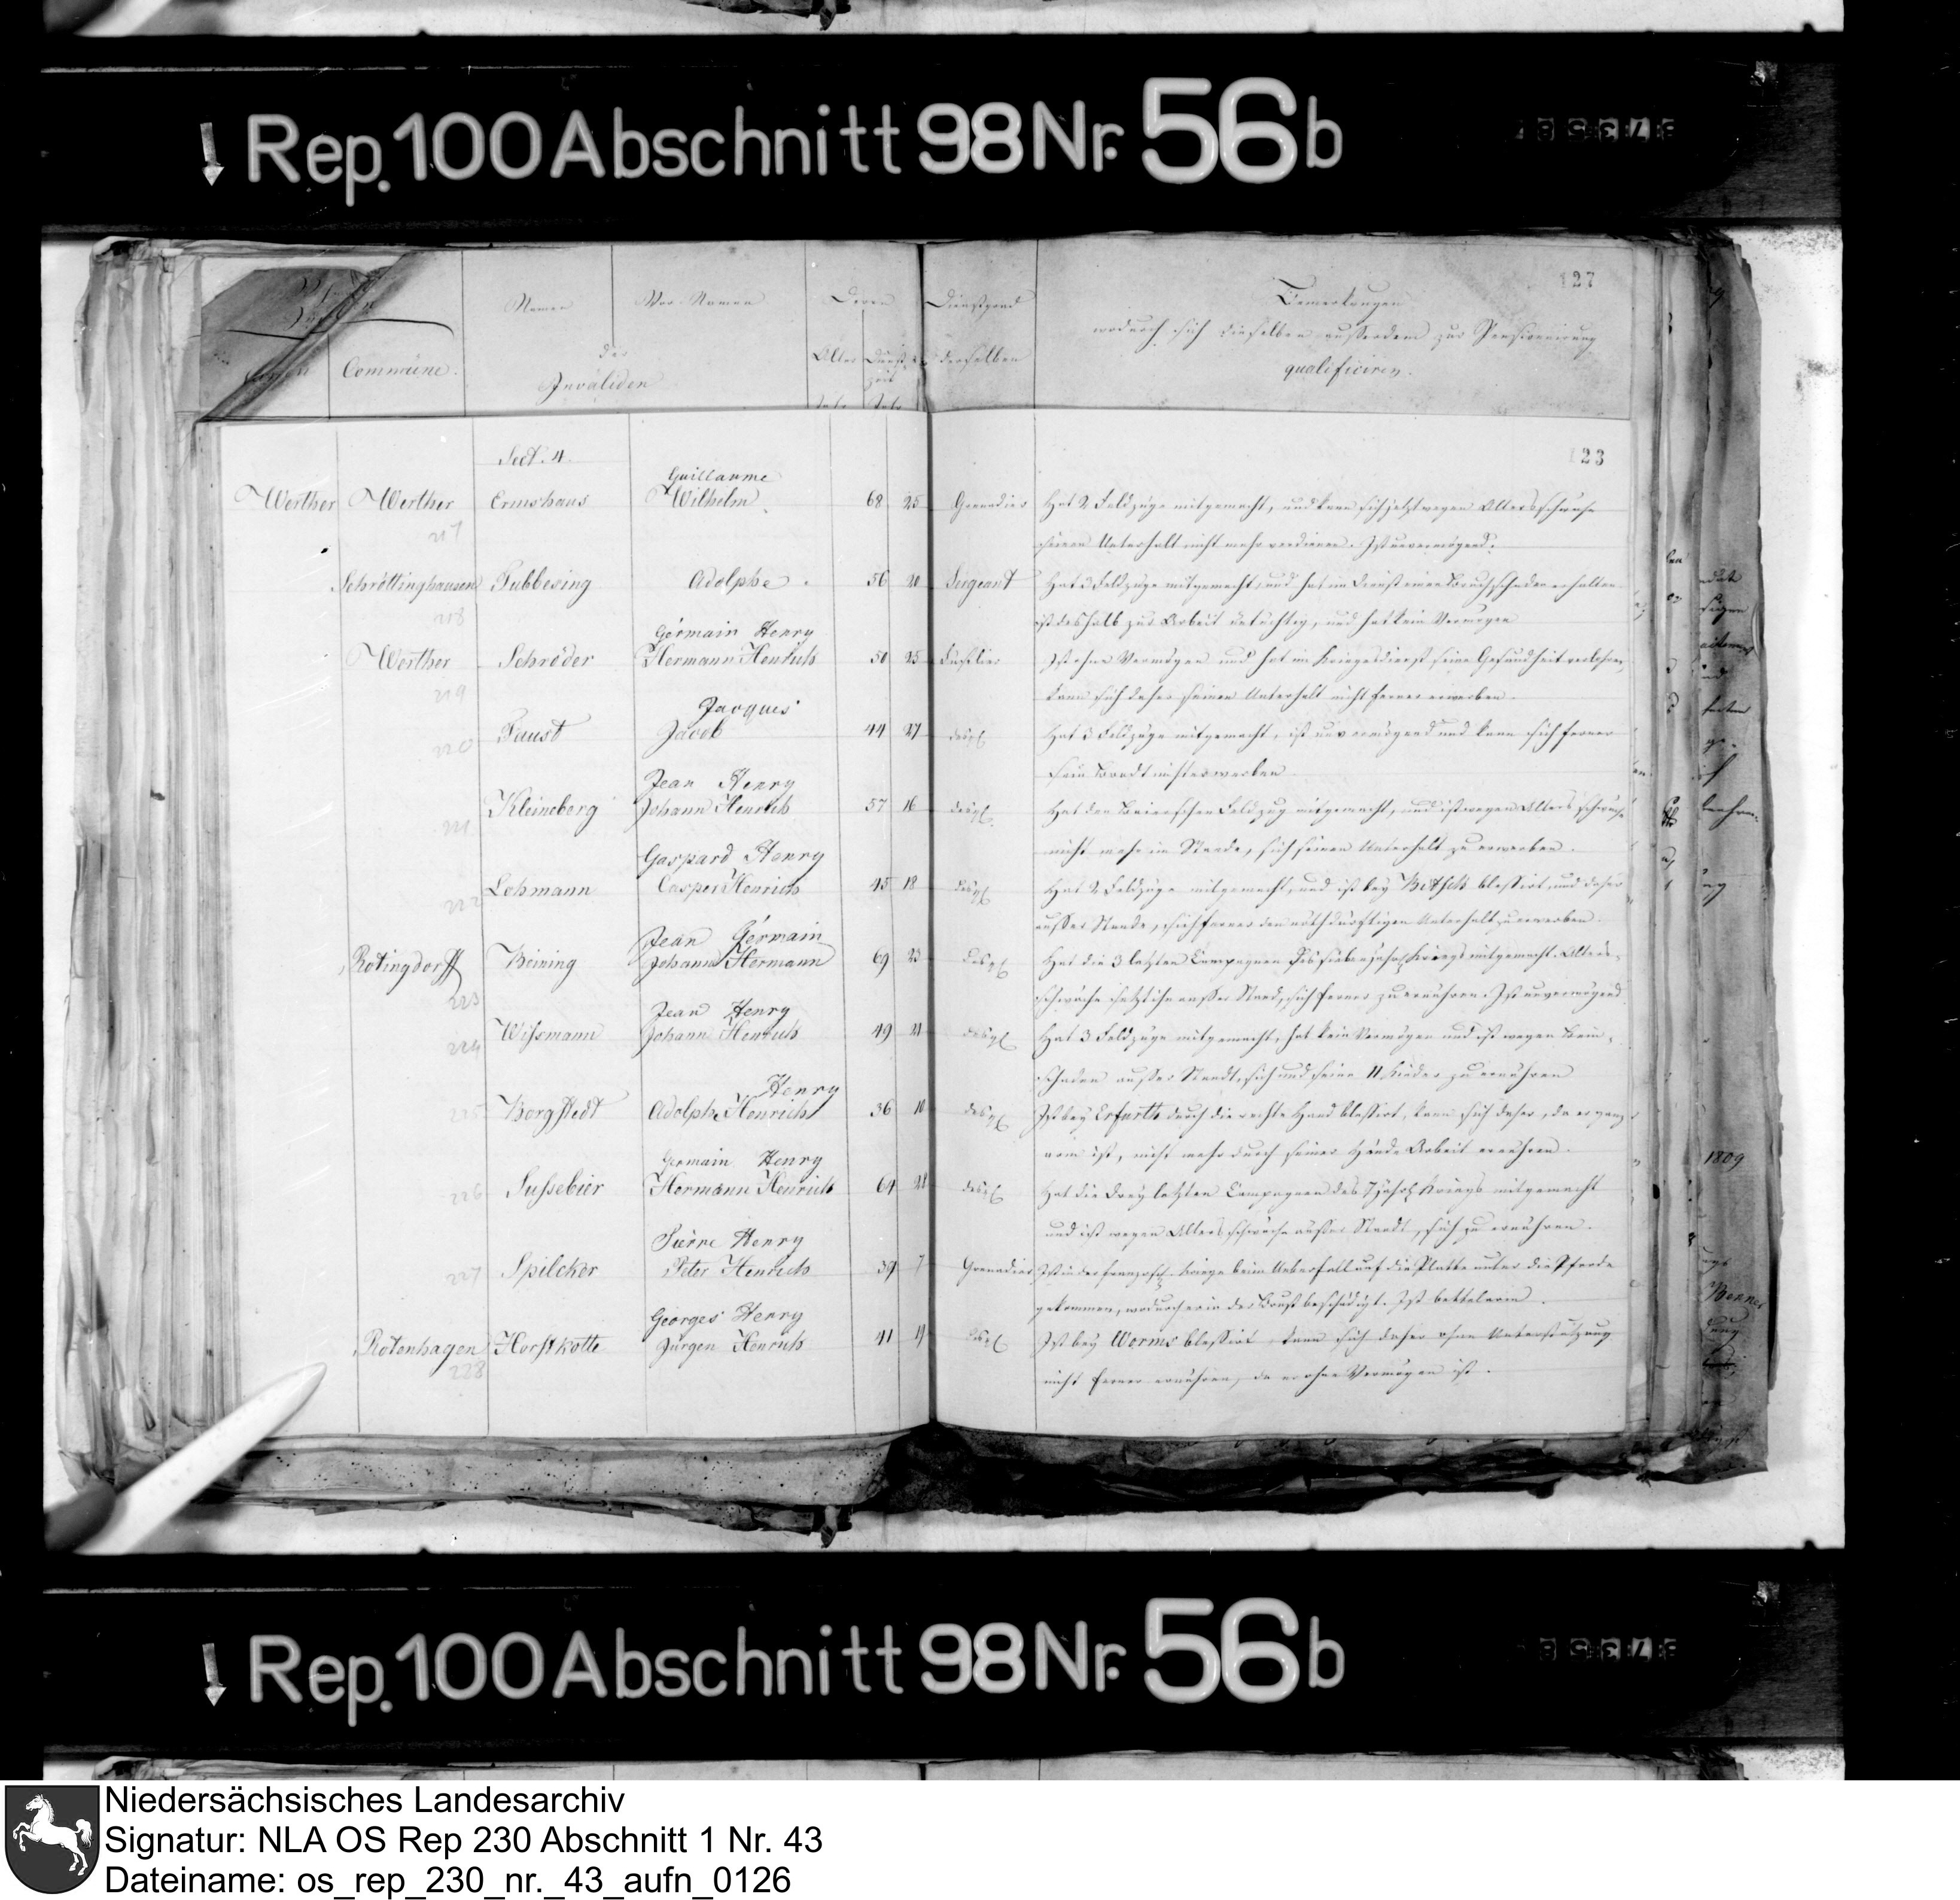 Rep. 100 Abschnitt 98 Nr. 56b
127
Namen Vor-Namen Deren Dienstgrad Bemerkungen
wodurch sich dieselben ausserdem zur Pensionirung
Commüne. der Invaliden Alter Dienstzeit derselben qualificiren.
Jahr Jahr
Sect. 4.
123
Guillaume
Werther Werther Ermshaus Wilhelm 68 25 Grenadier Hat 2 Feldzüge mitgemacht, und kann sich jetzt wegen Altersschwäche
217 seinen Unterhalt nicht mehr verdienen. Ist unvermögend.
Schröttinghausen Tubbesing Adolphe 56 20 Sergeant Hat 3 Feldzüge mitgemacht, und hat im Dienst einen Bruchschaden erhalten
218 ist deshalb zur Arbeit untüchtig, und hat kein Vermögen
Germain Henry
Werther Schröder Hermann Henrich 50 25 Füselier Ist ohne Vermögen und hat im Kriegesdienst seine Gesundheit verlohren,
219 kann sich daher seinen Unterhalt nicht ferner erwerben.
Jacques
Faust Jacob 44 27 desgl Hat 3 Feldzüge mitgemacht, ist unvermögend und kann sich ferner
220 sein Brodt nicht erwerben
Jean Henry
Kleineberg Johann Henrich 57 16 desgl. Hat den Baierschen Feldzug mitgemacht, und ist wegen Altersschwäche
221 nicht mehr im Stande, sich seinen Unterhalt zu erwerben.
Gaspard Henry
Lehmann Casper Henrich 45 18 desgl Hat 2 Feldzüge mitgemacht, und ist bey Bitsch blessirt, und daher
222 ausser Stande, sich ferner den nothdürftigen Unterhalt zu erwerben.
Jean Germain
Rotingdorff Beining Johann Hermann 69 23 desgl Hat die 3 letzten Campagnen des siebenjähr. Kriegs mitgemacht. Alters-
223 schwäche setzt ihn ausser Stand, sich ferner zu ernähren. Ist unvermögend
Jean Henry
Wissmann Johann Henrich 49 21 desgl Hat 3 Feldzüge mitgemacht, hat kein Vermögen und ist wegen Bein-
224 schaden ausser Standt, sich und seine 11 Kinder zu ernähren
Henry
225 Borgstedt Adolph Henrich 36 10 desgl Ist bey Erfurth durch die rechte Hand blessirt, kann sich daher, da er ganz
arm ist, nicht mehr durch seiner Hände Arbeit ernähren.
Germain Henry
226 Sussebier Hermann Henrich 64 desgl Hat die drey letzten Campagnen des 7 jähr. Kriegs mitgemacht
und ist wegen Altersschwäche ausser Standt, sich zu ernähren.
Pierre Henry
227 Spilcker Peter Henrich 39 7 Grenadier Ist in der französ. Kriege beim Ueberfall auf die Platte unter die Pferde
gekommen, wodurch er in der Brust beschädigt. Ist bettelarm.
Georges Henry
Rotenhagen Horstkotte Jürgen Henrich 41 19 desgl Ist bey Worms blessirt, kann sich daher ohne Unterstützung
228 nicht ferner ernähren, da er ohne Vermögen ist.
1809
Rep. 100 Abschnitt 98 Nr. 56b
Niedersächsisches Landesarchiv
Signatur: NLA OS Rep 230 Abschnitt 1 Nr. 43
Dateiname: os_rep_230_nr._43_aufn_0126